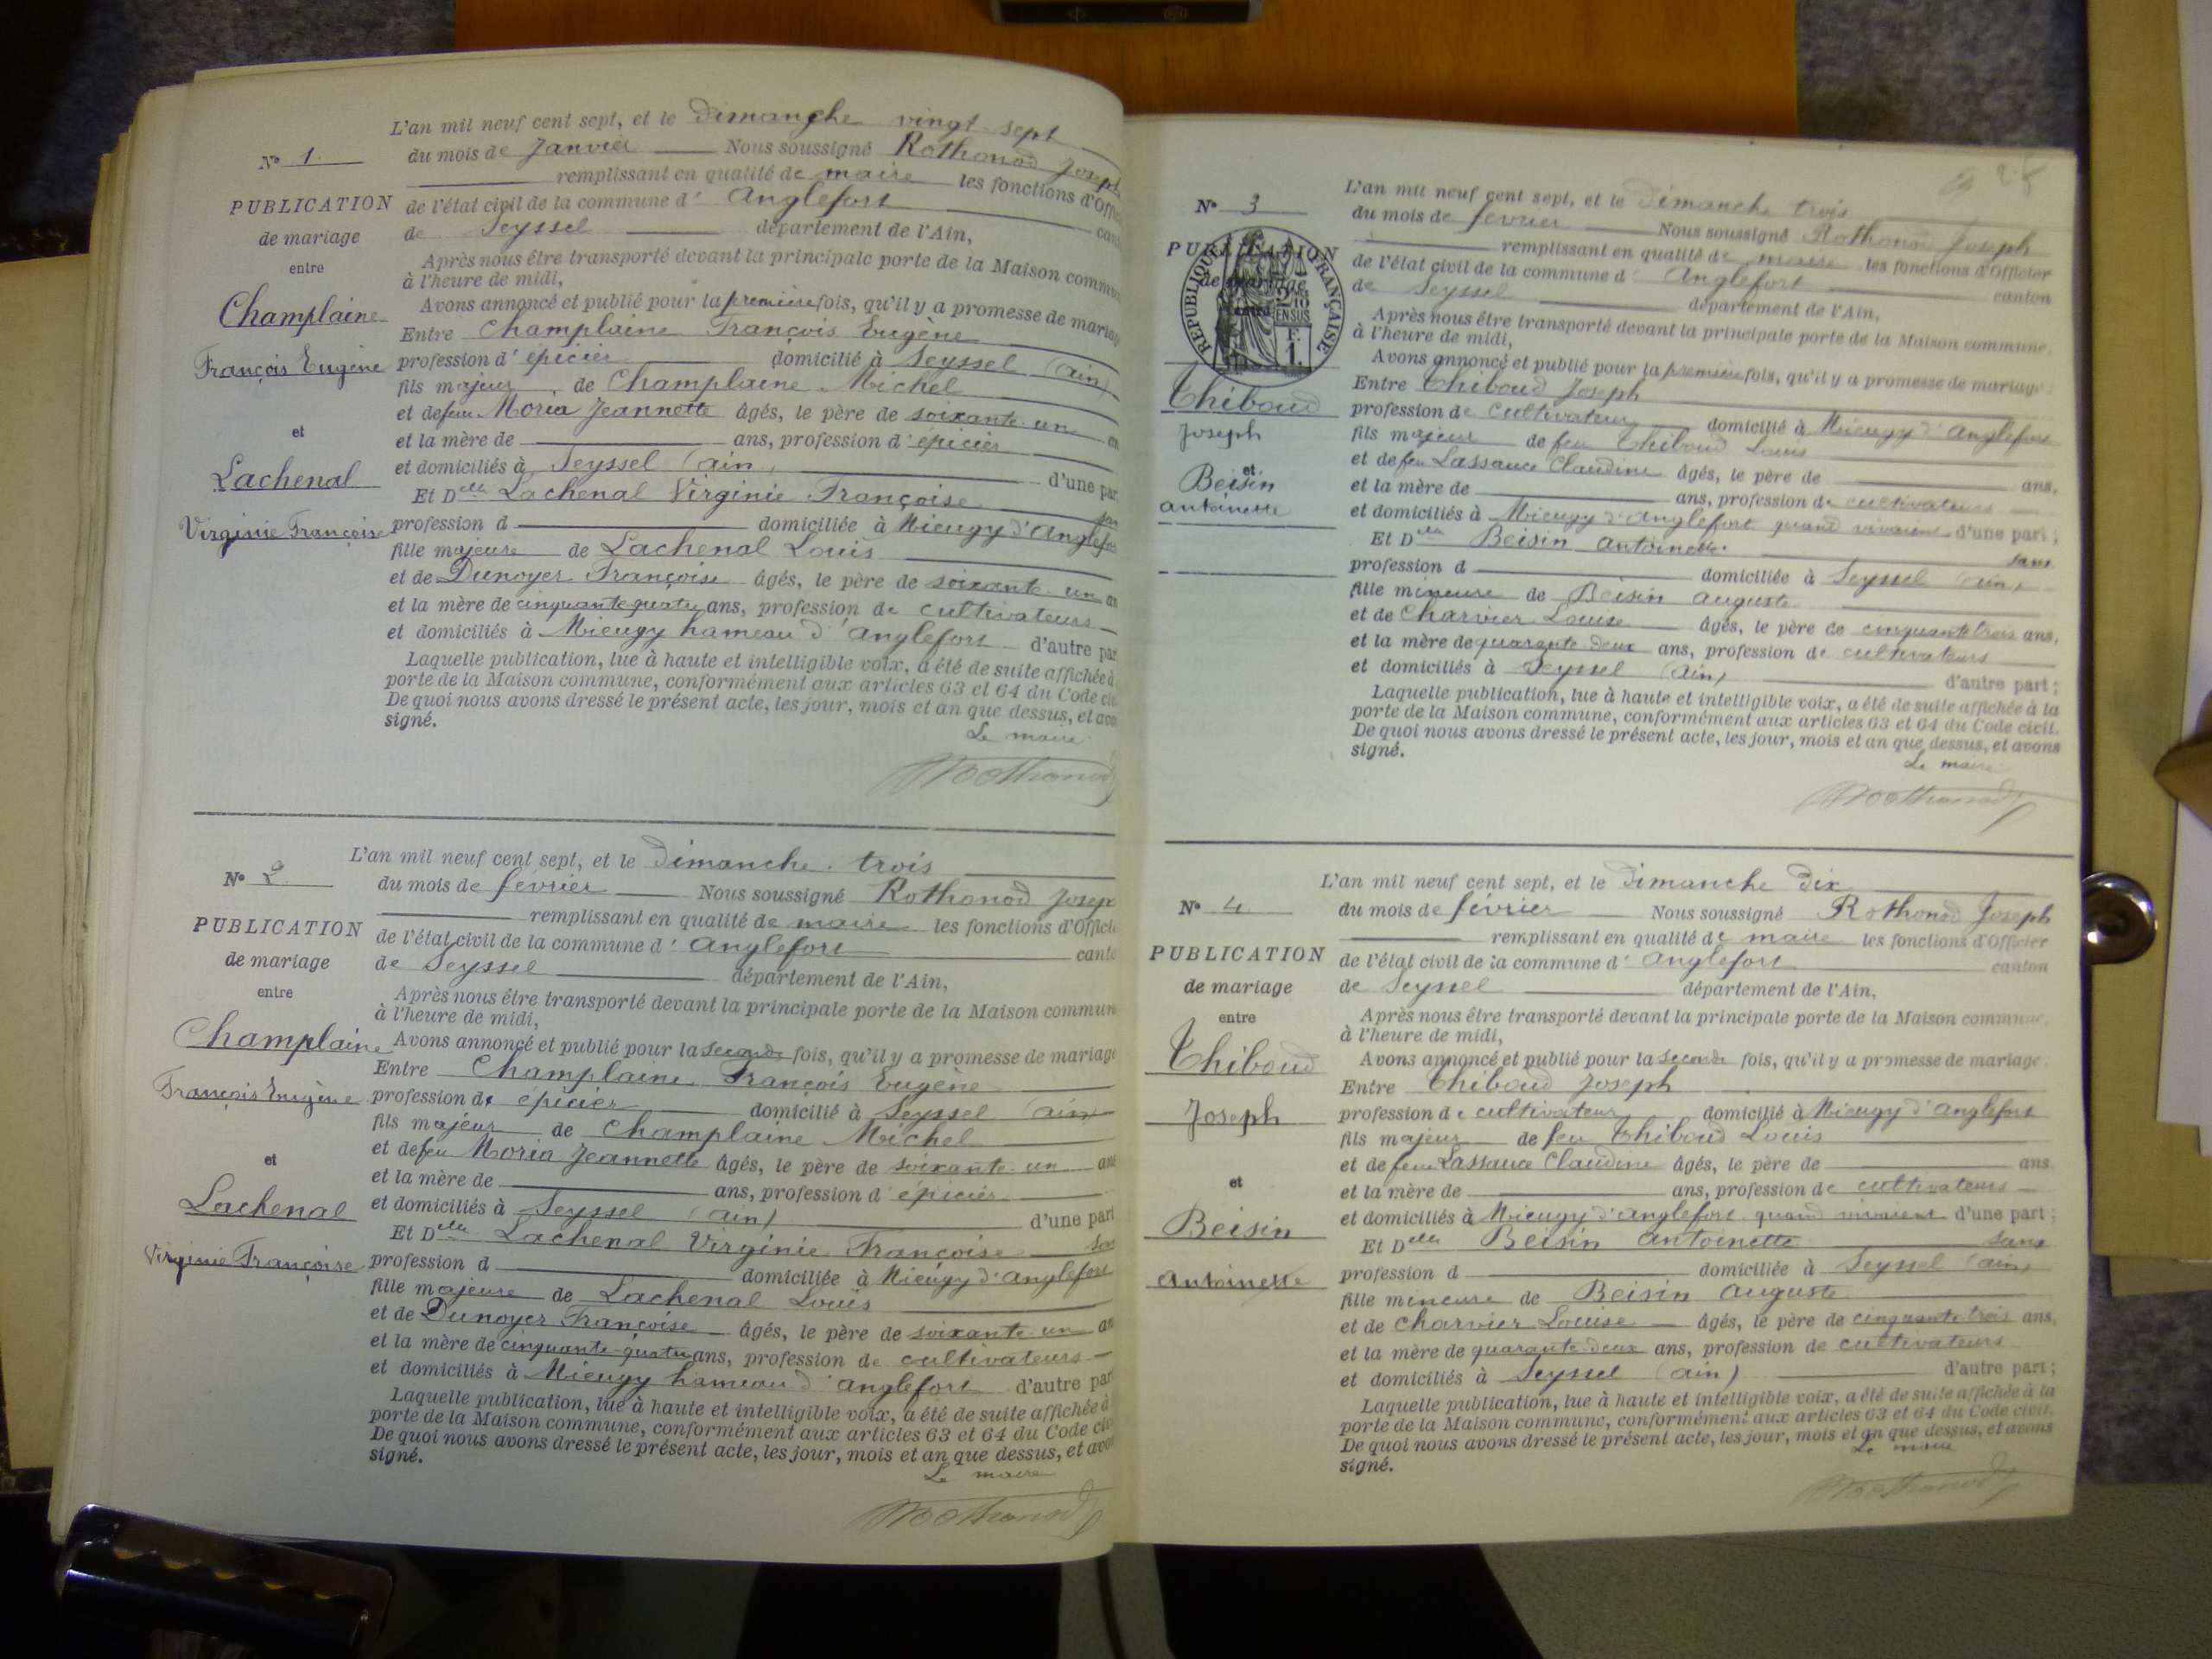 L'an mil neuf cent sept, et le Dimanche vingt-sept
N° 1
du mois de Janvier Nous soussigné Rothonod Joseph
remplissant en qualité de maire les fonctions d'Offi
PUBLICATION
de l'état civil de la commune d' Anglefort can
de mariage
de Seyssel département de l'Ain,
entre
Après nous être transporté devant la principale porte de la Maison commu
à l'heure de midi,
Champlaine
Avons annoncé et publié pour la première fois, qu'il y a promesse de mariag
Entre Champlaine François Eugène
François Eugène
profession d' épicier domicilié à Seyssel (Ain)
fils majeur de Champlaine Michel
et de feue Moria Jeannette âgés, le père de soixante-un an
et
et la mère de ans, profession d' épicier
et domiciliés à Seyssel (Ain) d'une par
Lachenal
Et Delle Lachenal Virginie Françoise san
Virginie Françoise
profession d domiciliée à Mieugy d'Anglefor
fille majeure de Lachenal Louis
et de Dunoyer Françoise âgés, le père de soixante-un an
et la mère de cinquante-quatre ans, profession de cultivateurs
et domiciliés à Mieugy hameau d'Anglefort d'autre par
Laquelle publication, lue à haute et intelligible voix, a été de suite affichée à
porte de la Maison commune, conformément aux articles 63 et 64 du Code civ
De quoi nous avons dressé le présent acte, les jour, mois et an que dessus, et avo
signé.
Le maire
Rothonod
L'an mil neuf cent sept, et le Dimanche trois
N° 2
du mois de février Nous soussigné Rothonod Josep
remplissant en qualité de maire les fonctions d'Offici
PUBLICATION
de l'état civil de la commune d' Anglefort canto
de mariage
de Seyssel département de l'Ain,
entre
Après nous être transporté devant la principale porte de la Maison commun
à l'heure de midi,
Champlaine
Avons annoncé et publié pour la seconde fois, qu'il y a promesse de mariage
Entre Champlaine François Eugène
François Eugène
profession d' épicier domicilié à Seyssel (Ain)
fils majeur de Champlaine Michel
et de feu Moria Jeannette âgés, le père de soixante-un ans
et
et la mère de ans, profession d' épicier
Lachenal
et domiciliés à Seyssel (Ain) d'une part
Et Delle Lachenal Virginie Françoise san
Virginie Françoise
profession d domiciliée à Mieugy d'Anglefort
fille majeure de Lachenal Louis
et de Dunoyer Françoise âgés, le père de soixante-un an
et la mère de cinquante-quatre ans, profession de cultivateurs
et domiciliés à Mieugy hameau d'Anglefort d'autre par
Laquelle publication, lue à haute et intelligible voix, a été de suite affichée à
porte de la Maison commune, conformément aux articles 63 et 64 du Code civ
De quoi nous avons dressé le présent acte, les jour, mois et an que dessus, et avo
signé.
Le maire
Rothonod
28
L'an mil neuf cent sept, et le Dimanche trois
N° 3
du mois de février Nous soussigné Rothonod Joseph
remplissant en qualité de maire les fonctions d'Officier
PUBLICATION
de l'état civil de la commune d' Anglefort canton
de mariage
RÉPUBLIQUE FRANÇAISE
de Seyssel département de l'Ain,
Après nous être transporté devant la principale porte de la Maison commune,
à l'heure de midi,
Avons annoncé et publié pour la première fois, qu'il y a promesse de mariage :
Thiboud
Entre Thiboud Joseph
profession de cultivateur domicilié à Mieugy d'Anglefort
Joseph
fils majeur de feu Thiboud Louis
et
et de feu Lassauce Claudine âgés, le père de ans,
Beisin
et la mère de ans, profession de cultivateurs
Antoinette
et domiciliés à Mieugy d'Anglefort quand vivaient d'une part ;
Et Delle Beisin Antoinette sans
profession d domiciliée à Seyssel (Ain)
fille mineure de Beisin Auguste
et de Charvier Louise âgés, le père de cinquante-trois ans,
et la mère de quarante-deux ans, profession de cultivateurs
et domiciliés à Seyssel (Ain) d'autre part ;
Laquelle publication, lue à haute et intelligible voix, a été de suite affichée à la
porte de la Maison commune, conformément aux articles 63 et 64 du Code civil.
De quoi nous avons dressé le présent acte, les jour, mois et an que dessus, et avons
signé.
Le maire
Rothonod
L'an mil neuf cent sept, et le Dimanche dix
N° 4
du mois de février Nous soussigné Rothonod Joseph
remplissant en qualité de maire les fonctions d'Officier
PUBLICATION
de l'état civil de la commune d' Anglefort canton
de mariage
de Seyssel département de l'Ain,
entre
Après nous être transporté devant la principale porte de la Maison commune,
à l'heure de midi,
Thiboud
Avons annoncé et publié pour la seconde fois, qu'il y a promesse de mariage
Entre Thiboud Joseph
Joseph
profession de cultivateur domicilié à Mieugy d'Anglefort
fils majeur de feu Thiboud Louis
et de feue Lassauce Claudine âgés, le père de ans
et
et la mère de ans, profession de cultivateurs
Beisin
et domiciliés à Mieugy d'Anglefort quand vivaient d'une part ;
Et Delle Beisin Antoinette sans
Antoinette
profession d domiciliée à Seyssel (Ain)
fille mineure de Beisin Auguste
et de Charvier Louise âgés, le père de cinquante-trois ans,
et la mère de quarante-deux ans, profession de cultivateurs
et domiciliés à Seyssel (Ain) d'autre part ;
Laquelle publication, lue à haute et intelligible voix, a été de suite affichée à la
porte de la Maison commune, conformément aux articles 63 et 64 du Code civil.
De quoi nous avons dressé le présent acte, les jour, mois et an que dessus, et avons
signé.
Le maire
Rothonod